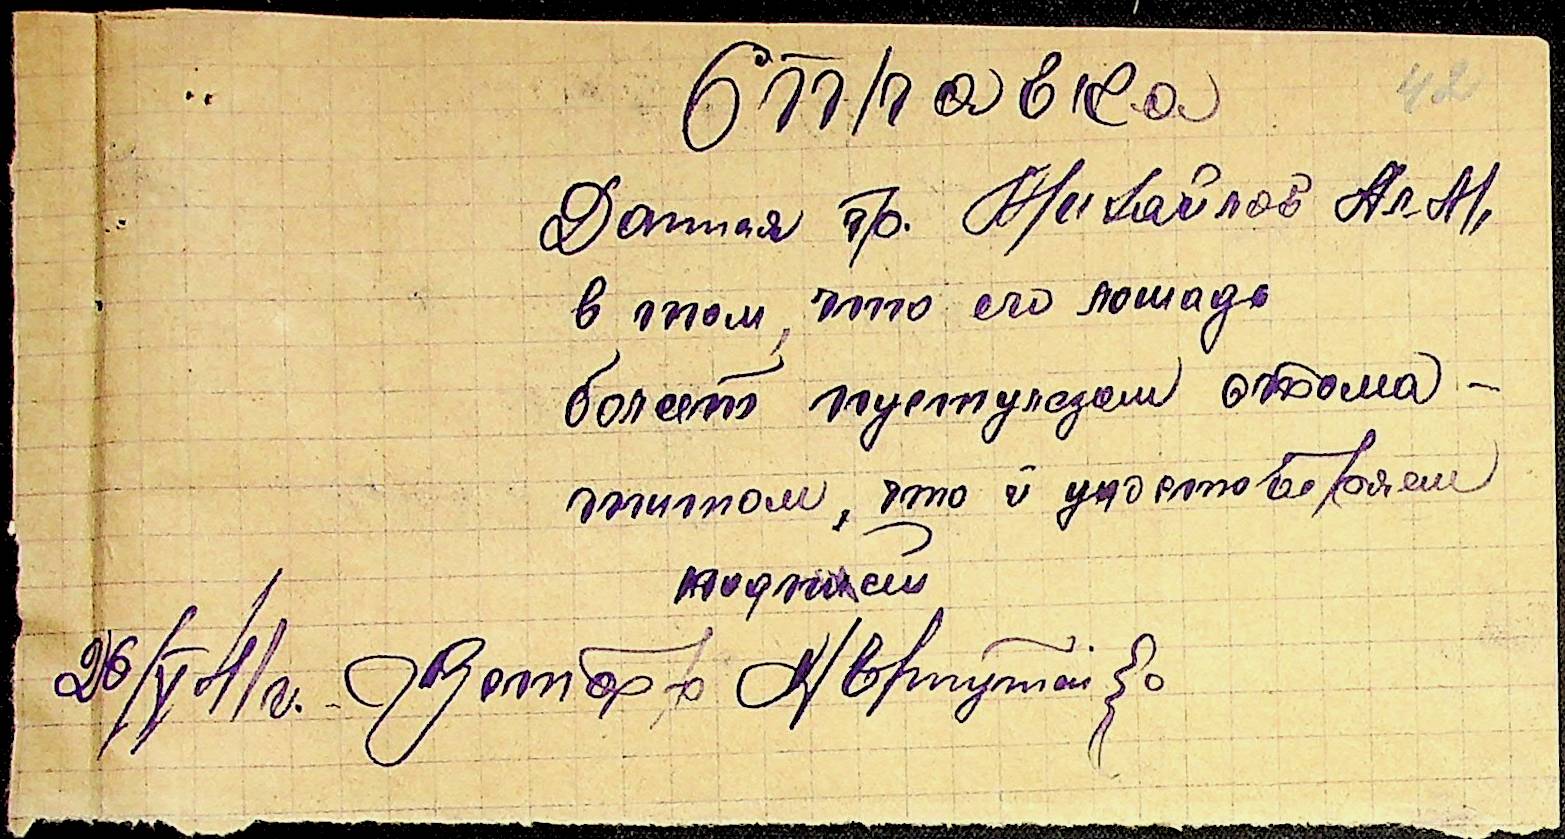 Справка
42
Данная гр. Михайлов Ал. М.
в том, что его лошадь
болеет пустулезом стома-
титом, что и удостоверяем
подписью
26/V 41 г. Ветвр